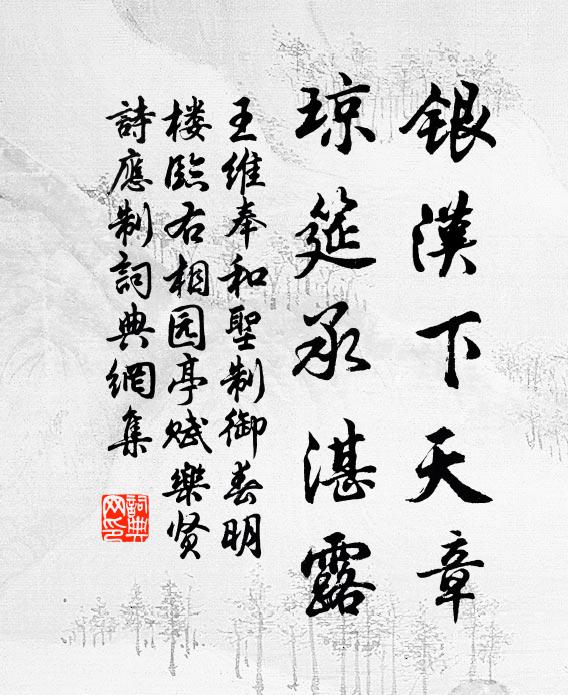 銀漢下天章
瓊筵承湛露
王維奉和聖制御春明
楼臨右相园亭赋樂贤
詩應制詞典網集
詞典网印